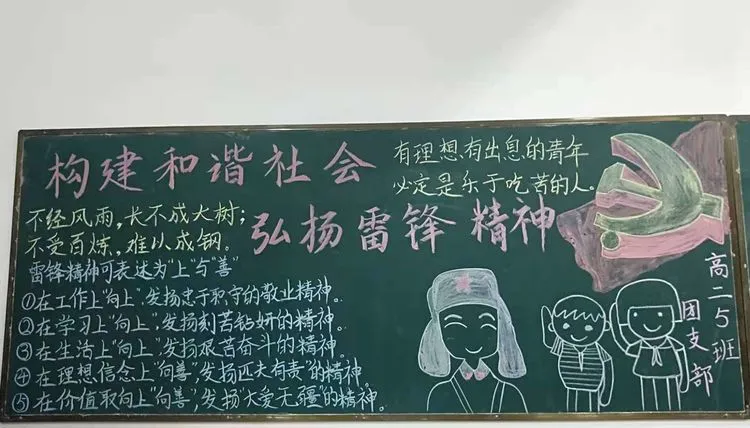 构建和谐社会
有理想有出息的青年
必定是乐于吃苦的人。
不经风雨，长不成大树；
不受百炼，难以成钢。
弘扬雷锋精神
雷锋精神可表述为"上"与"善"
①在工作上"向上"，发扬忠于职守的敬业精神。
②在学习上"向上"，发扬刻苦钻妍的精神。
③在生活上"向上"，发扬艰苦奋斗的精神。
④在理想信念上"向善"，发扬匹夫有责"的精神。
⑤在价值取向上"向善"，发扬大爱无疆的精神。
高二5班
团支部